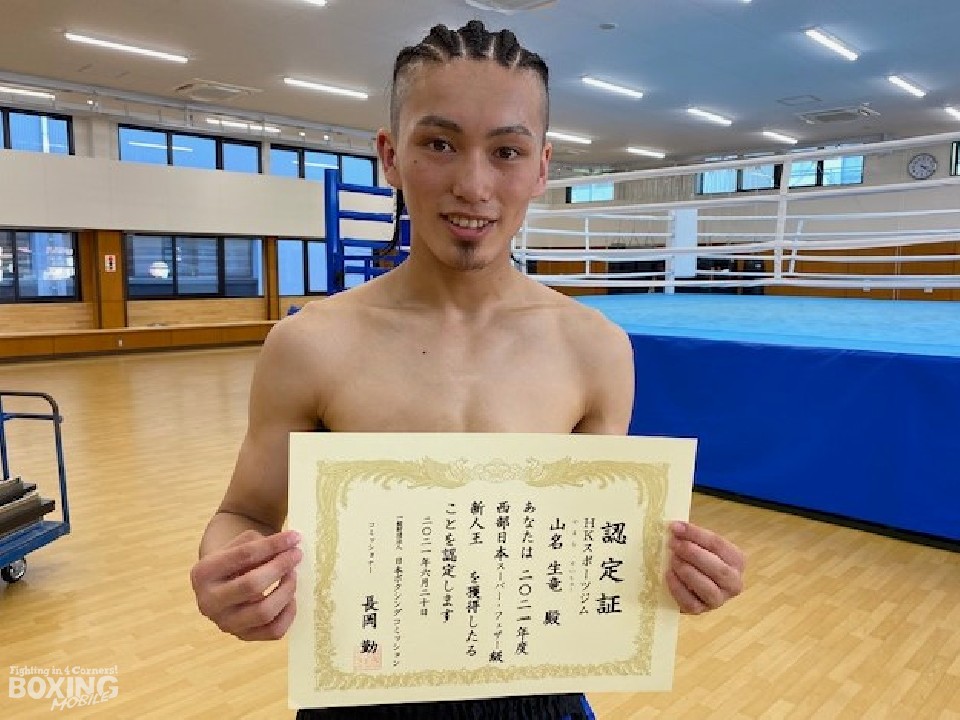 認定証
HKスポーツジム
山名 生竜 殿
あなたは 二〇二一年度
西部日本スーパー・フェザー級
新人王 を獲得したる
ことを認定します
二〇二一年六月二十日
一般財団法人 日本ボクシングコミッション
コミッショナー 長岡 勤
Fighting in 4 Corners!
BOXING
MOBILE